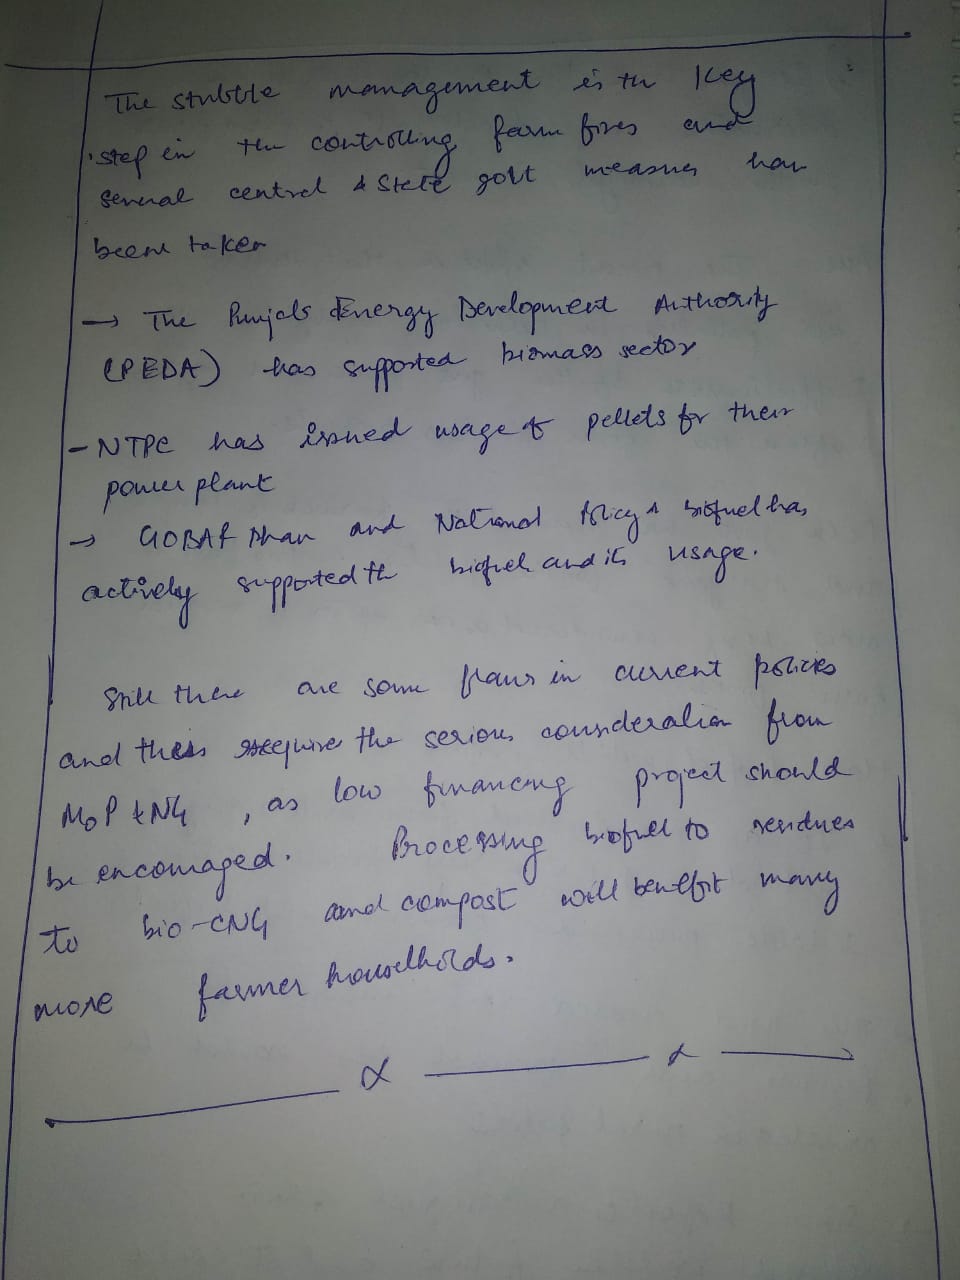 The stubble management is the key
step in the controlling farm fires and
several central & State govt measures have
been taken
→ The Punjab Energy Development Authority
(PEDA) has supported biomass sector
- NTPC has issued usage of pellets for their
power plant
→ GOBAR Dhan and National Policy biofuel has
actively supported the biofuel and its usage.
Still there are some flaws in current policies
and thess require the serious consideration from
MoP&NG, as low financing project should
be encouraged. Processing biofuel to residues
to bio-CNG and compost will benefit many
more farmer households.